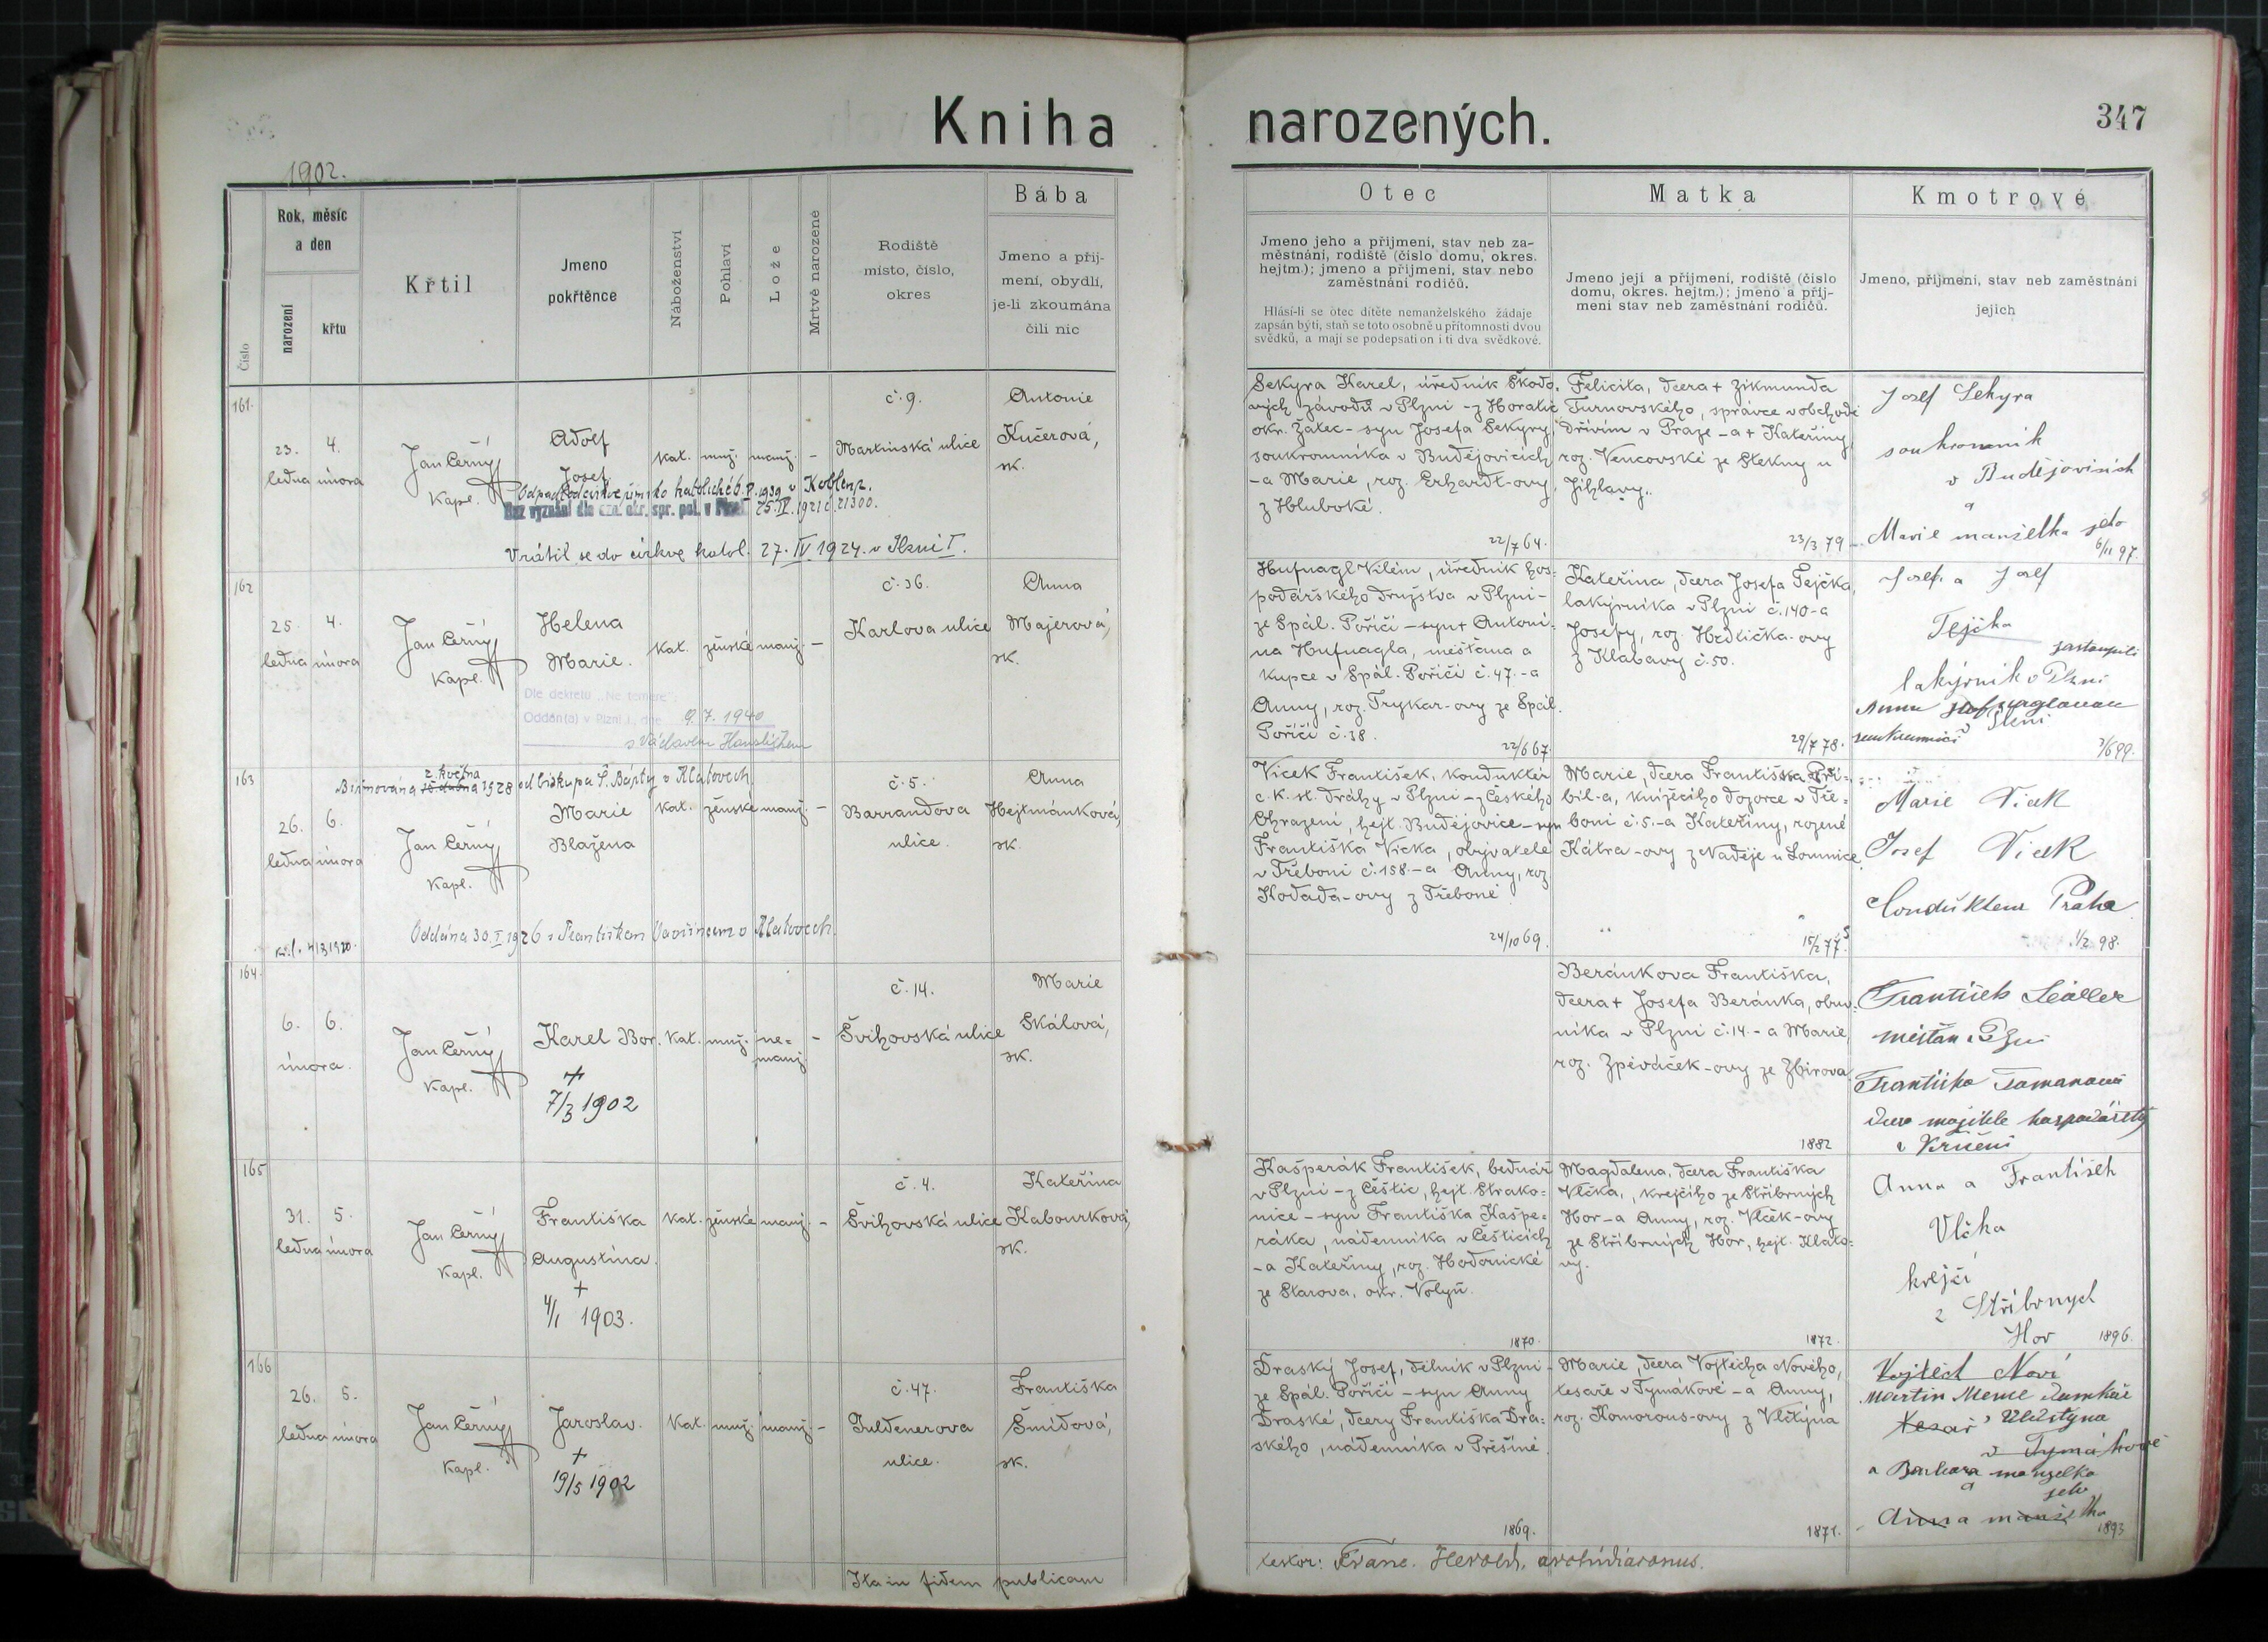 Kniha narozených.
347
1902.
Číslo
Rok, měsíc
a den
narození
křtu
Křtil
Jmeno
pokřtěnce
Náboženství
Pohlaví
Lože
Mrtvě narozené
Rodiště
místo, číslo,
okres
Bába
Jmeno a příj-
mení, obydlí,
je-li zkoumána
čili nic
Otec
Jmeno jeho a příjmení, stav neb za-
městnání, rodiště (číslo domu, okres.
hejtm.); jmeno a příjmení, stav nebo
zaměstnání rodičů.
Hlásí-li se otec dítěte nemanželského žádaje
zapsán býti, staň se toto osobně u přítomnosti dvou
svědků, a mají se podepsati on i ti dva svědkové.
Matka
Jmeno její a příjmení, rodiště (číslo
domu, okres. hejtm.); jmeno a příj-
mení stav neb zaměstnání rodičů.
Kmotrové
Jmeno, příjmení, stav neb zaměstnání
jejich
161.
23.
ledna
4.
února
Jan Černý
Kapl.
Adolf
Josef
kat.
muž.
manž.
–
č. 9.
Martinská ulice
Antonie
Kučerová,
zk.
1939 v Koblenz.
Bez vyznání dle ozn. okr. spr. pol. v Plzni 25.IV.1921 č. 21300.
Vrátil se do církve katol. 27. IV 1924. v Plzni I.
Sekyra Karel, úředník Škodo-
vých závodů v Plzni – z Horatic
okr. Žatec – syn Josefa Sekyry,
soukromníka v Budějovicích
– a Marie, roz. Erhardt-ovy
z Hluboké.
22/7 64.
Felicita, dcera + Zikmunda
Turnovského, správce v obchodě
dřívím v Praze – a + Kateřiny
roz. Vencovské ze Stekny u
Jihlavy.
23/3 79
Josef Sekyra
soukromník
v Budějovicích
a
Marie manželka jeho
6/11 97.
162
25.
ledna
4.
února
Jan Černý
Kapl.
Helena
Marie.
kat.
ženské
manž.
–
č. 36.
Karlova ulice
Anna
Majerová,
zk.
Dle dekretu „Ne temere":
Oddán(a) v Plzni I., dne 9. 7. 1940
s Václavem
Hufnagl Klem., úředník hos-
podářského družstva v Plzni –
ze Spál. Poříčí – syn + Antoní-
na Hufnagla, měšťana a
kupce v Spál. Poříčí č. 47. – a
Anny, roz. Trykar-ovy ze Spál.
Poříčí č. 38.
22/6 67
Kateřina, dcera Josefa Tejčka,
lakýrníka v Plzni č. 140 – a
Josefy, roz. Hrdlička-ovy
z Klabavy č. 50.
29/7 78.
Josef a Josef
Tejčka
zastoupili
lakýrník v Plzni
Anna
Plzni
soukromnicí
163
Biřmována 2. května 1928 od biskupa Š. Bárty v Klatovech.
26.
ledna
6.
února
Jan Černý
Kapl.
Marie
Blažena
kat.
ženské
manž.
–
č. 5.
Barrandova
ulice.
Anna
Hejtmánková,
zk.
Oddána 30.I.1926 s Františkem Vavřincem v Klatovech.
Vicek František, konduktér
c. k. st. dráhy v Plzni – z Českého
Ohrazení, hejt. Budějovice – syn
Františka Vicka, obyvatele
v Třeboni č. 158. – a Anny, roz
Kodada-ovy z Třeboně
24/10 69.
Marie, dcera Františka Při-
bil-a, knížecího dozorce v Tře-
boni č. 5. – a Kateřiny, rozené
Kátra-ovy z Naděje u Lomnice
15/2 77.
Marie Vicek
Josef Vicek
Condukteur Praha
1/2 98.
164.
6.
února.
6.
Jan Černý
Kapl.
Karel Bor.
+
7/3 1902
kat.
muž.
ne-
manž.
–
č. 14.
Švihovská ulice
Marie
Skálová,
zk.
Beránkova Františka,
dcera + Josefa Beránka, obuv-
níka v Plzni č. 14. – a Marie,
roz. Zpěváček-ovy ze Zbirova
1882
František
měšťan v Plzni
Františka Tomanová
dcera majitele hospodářství
v
165
31.
ledna
5.
února
Jan Černý
Kapl.
Františka
Augustina.
+
4/1 1903.
kat.
ženské
manž.
–
č. 4.
Švihovská ulice
Kateřina
Kabourková,
zk.
Kašperák František, bednář
v Plzni – z Čestic, hejt. Strako-
nice – syn Františka Kašpe-
ráka, nádenníka v Česticích
– a Kateřiny, roz. Hodonické
ze Starova, okr. Volyň.
1870.
Magdalena, dcera Františka
Vlčka, krejčího ze Stříbrných
Hor – a Anny, roz. Vlček-ovy
ze Stříbrných Hor, hejt. Klato-
vy.
1872.
Anna a František
Vlčka
krejčí
z Stříbrných
Hor
1896.
166
26.
ledna
5.
února
Jan Černý
Kapl.
Jaroslav.
+
19/5 1902
kat.
muž.
manž.
–
č. 47.
Guldenerova
ulice.
Františka
Šmídová,
zk.
Draský Josef, dělník v Plzni –
ze Spál. Poříčí – syn Anny
Draské, dcery Františka Dra-
ského, nádenníka v Přešíně.
1869.
Marie, dcera Vojtěcha Nového,
tesaře v Tymákově – a Anny,
roz. Komorous-ovy z Vlktýna
1871.
Vojtěch Noví
Martin
tesař
v Tymákově
a Barbora manželka
jeho
a
Anna manželka
1893
Ita in fidem publicam
testor: Franc. Herold, archidiaconus.